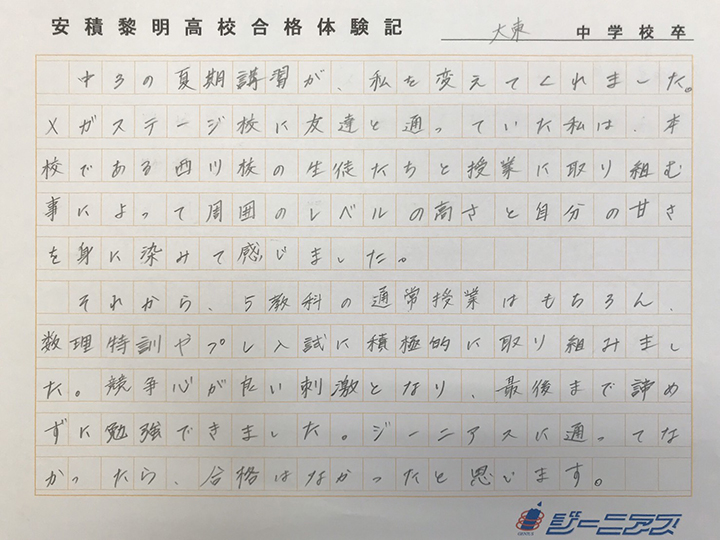 安積黎明高校合格体験記 大東 中学校卒
中3の夏期講習が、私を変えてくれました。
メガステージ校に友達と通っていた私は、本
校である西川校の生徒たちと授業に取り組む
事によって周囲のレベルの高さと自分の甘さ
を身に染みて感じました。
それから、5教科の通常授業はもちろん、
数理特訓やプレ入試に積極的に取り組みまし
た。競争心が良い刺激となり、最後まで諦め
ずに勉強できました。ジーニアスに通ってな
かったら、合格はなかったと思います。
ジーニアス